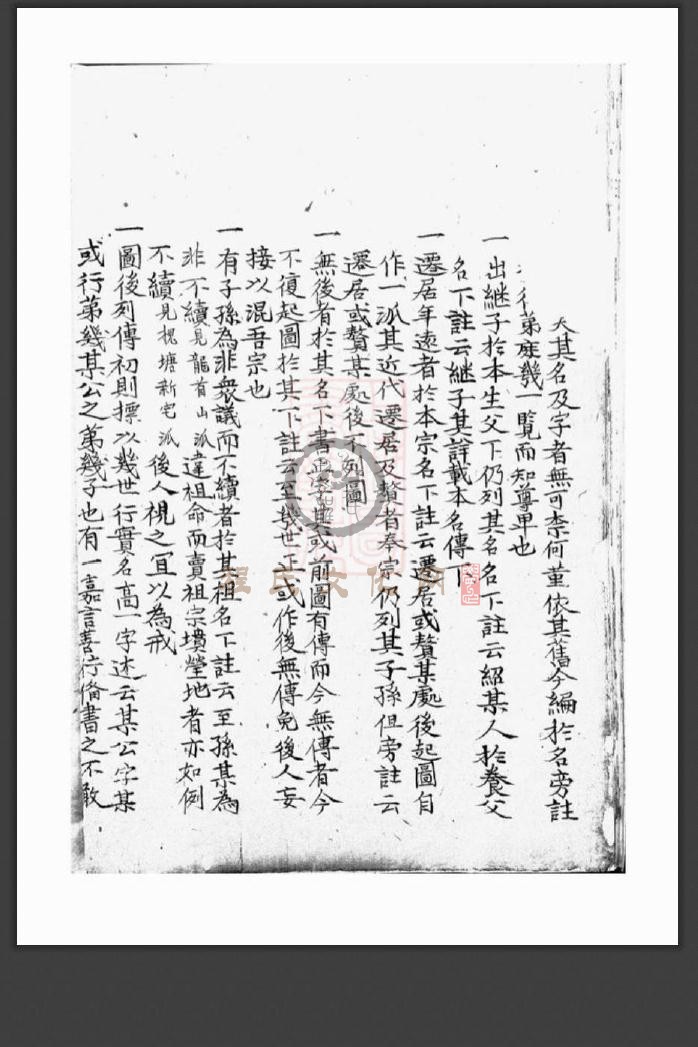 其名及字者無可柰何董依其舊今編於名旁註
行弟庶幾一覽而知尊卑也
一 出継子於本生父下仍列其名名下註云紹某人於養父
名下註云継子其詳載本名傳下
一 遷居年遠者於本宗名下註云遷居或贅某處後起圖自
作一派其近代遷居及贅者奉宗仍列其子孫但旁註云
遷居或贅某處後不列圖
一 無後者於其名下書無字其或前圖有傳而今無傳者今
不復起圖於其下註云至幾世止或作後無傳免後人妄
接以混吾宗也
一 有子孫為非衆議而不續者於其祖名下註云至孫某為
非不續見龍首山派違祖命而賣祖宗墳塋地者亦如例
不續見槐塘新宅派後人視之宜以為戒
一 圖後列傳初則摽以幾世行實名高一字述云某公字某
或行第幾某公之第幾子也有一嘉言善行俻書之不敢
程氏文化網